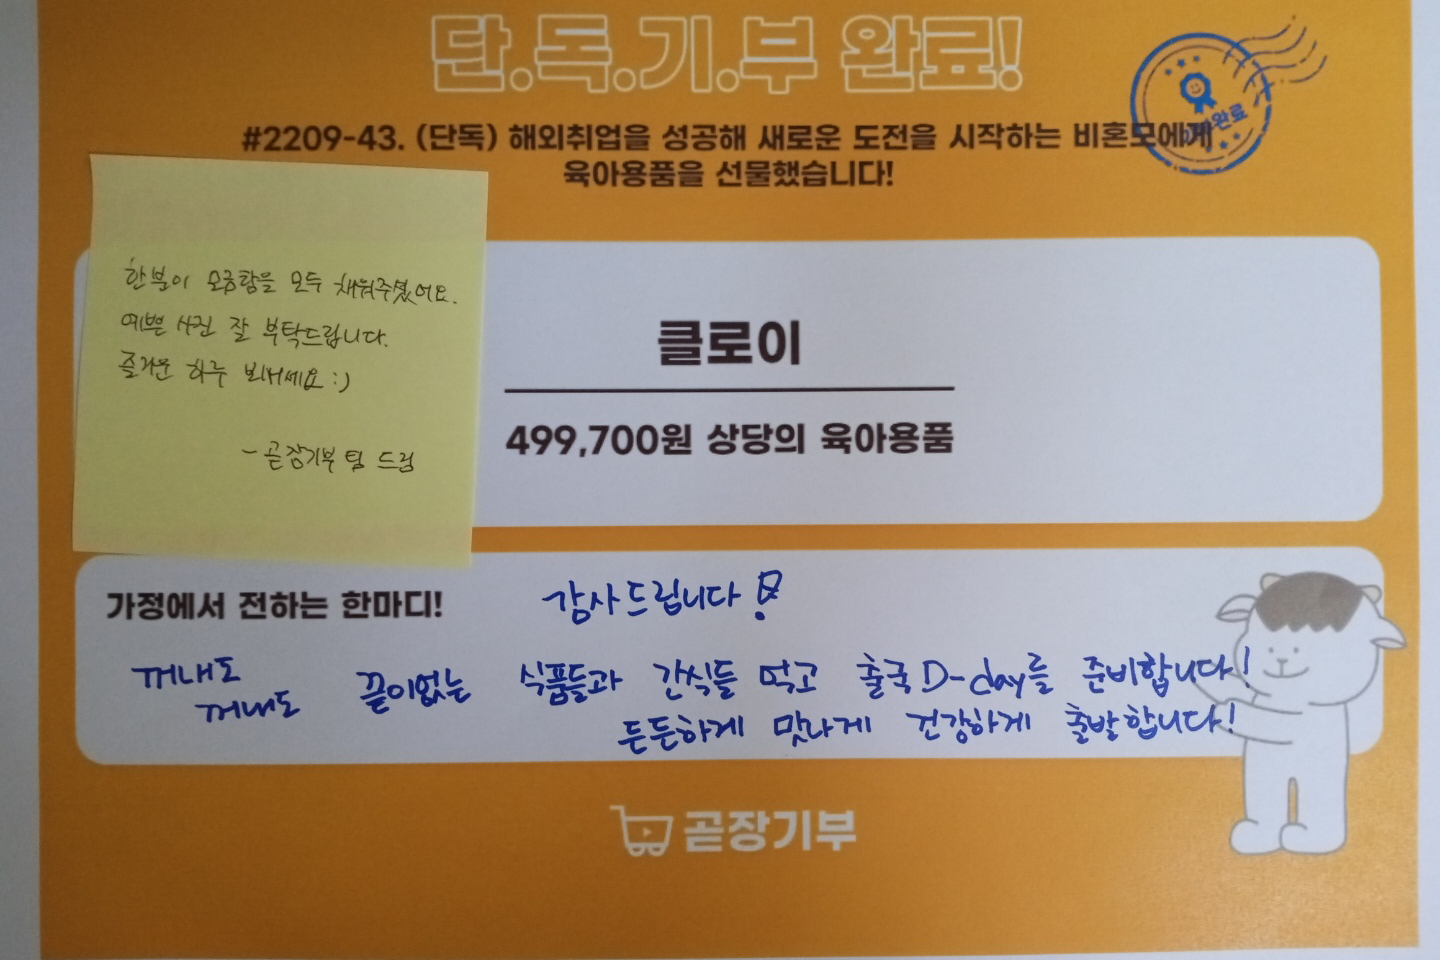 단.독.기.부 완료!
#2209-43. (단독) 해외취업을 성공해 새로운 도전을 시작하는 비혼모에게
육아용품을 선물했습니다!
완료
한분이 모금함을 모두 채워주셨어요.
예쁜 사진 잘 부탁드립니다.
즐거운 하루 보내세요 :)
- 곧장기부 팀 드림
클로이
499,700원 상당의 육아용품
가정에서 전하는 한마디!
감사드립니다!
꺼내도
꺼내도 끝이없는 식품들과 간식들 먹고 출국 D-day를 준비합니다!
든든하게 맛나게 건강하게 출발합니다!
곧장기부